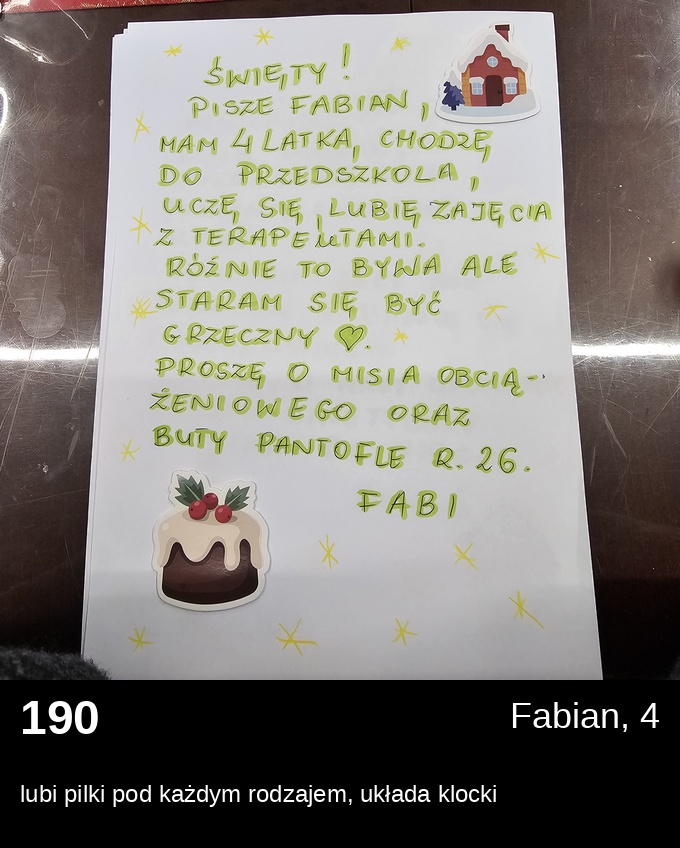 ŚWIĘTY!
PISZE FABIAN,
MAM 4 LATKA, CHODZĘ
DO PRZEDSZKOLA,
UCZĘ SIĘ, LUBIĘ ZAJĘCIA
Z TERAPEUTAMI.
RÓŻNIE TO BYWA ALE
STARAM SIĘ BYĆ
GRZECZNY ♡.
PROSZĘ O MISIA OBCIĄ-
ŻENIOWEGO ORAZ
BUTY PANTOFLE R. 26.
FABI
190
Fabian, 4
lubi pilki pod każdym rodzajem, układa klocki